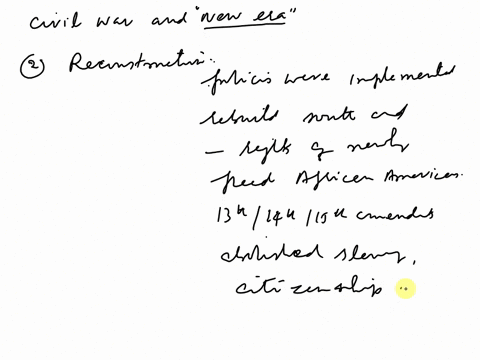 civil war and "new era"
② Reconstruction..
policies were implemented
rebuild south and
— rights of newly
freed African Americans.
13th / 14th / 15th amendments
abolished slavery,
citizenship ..